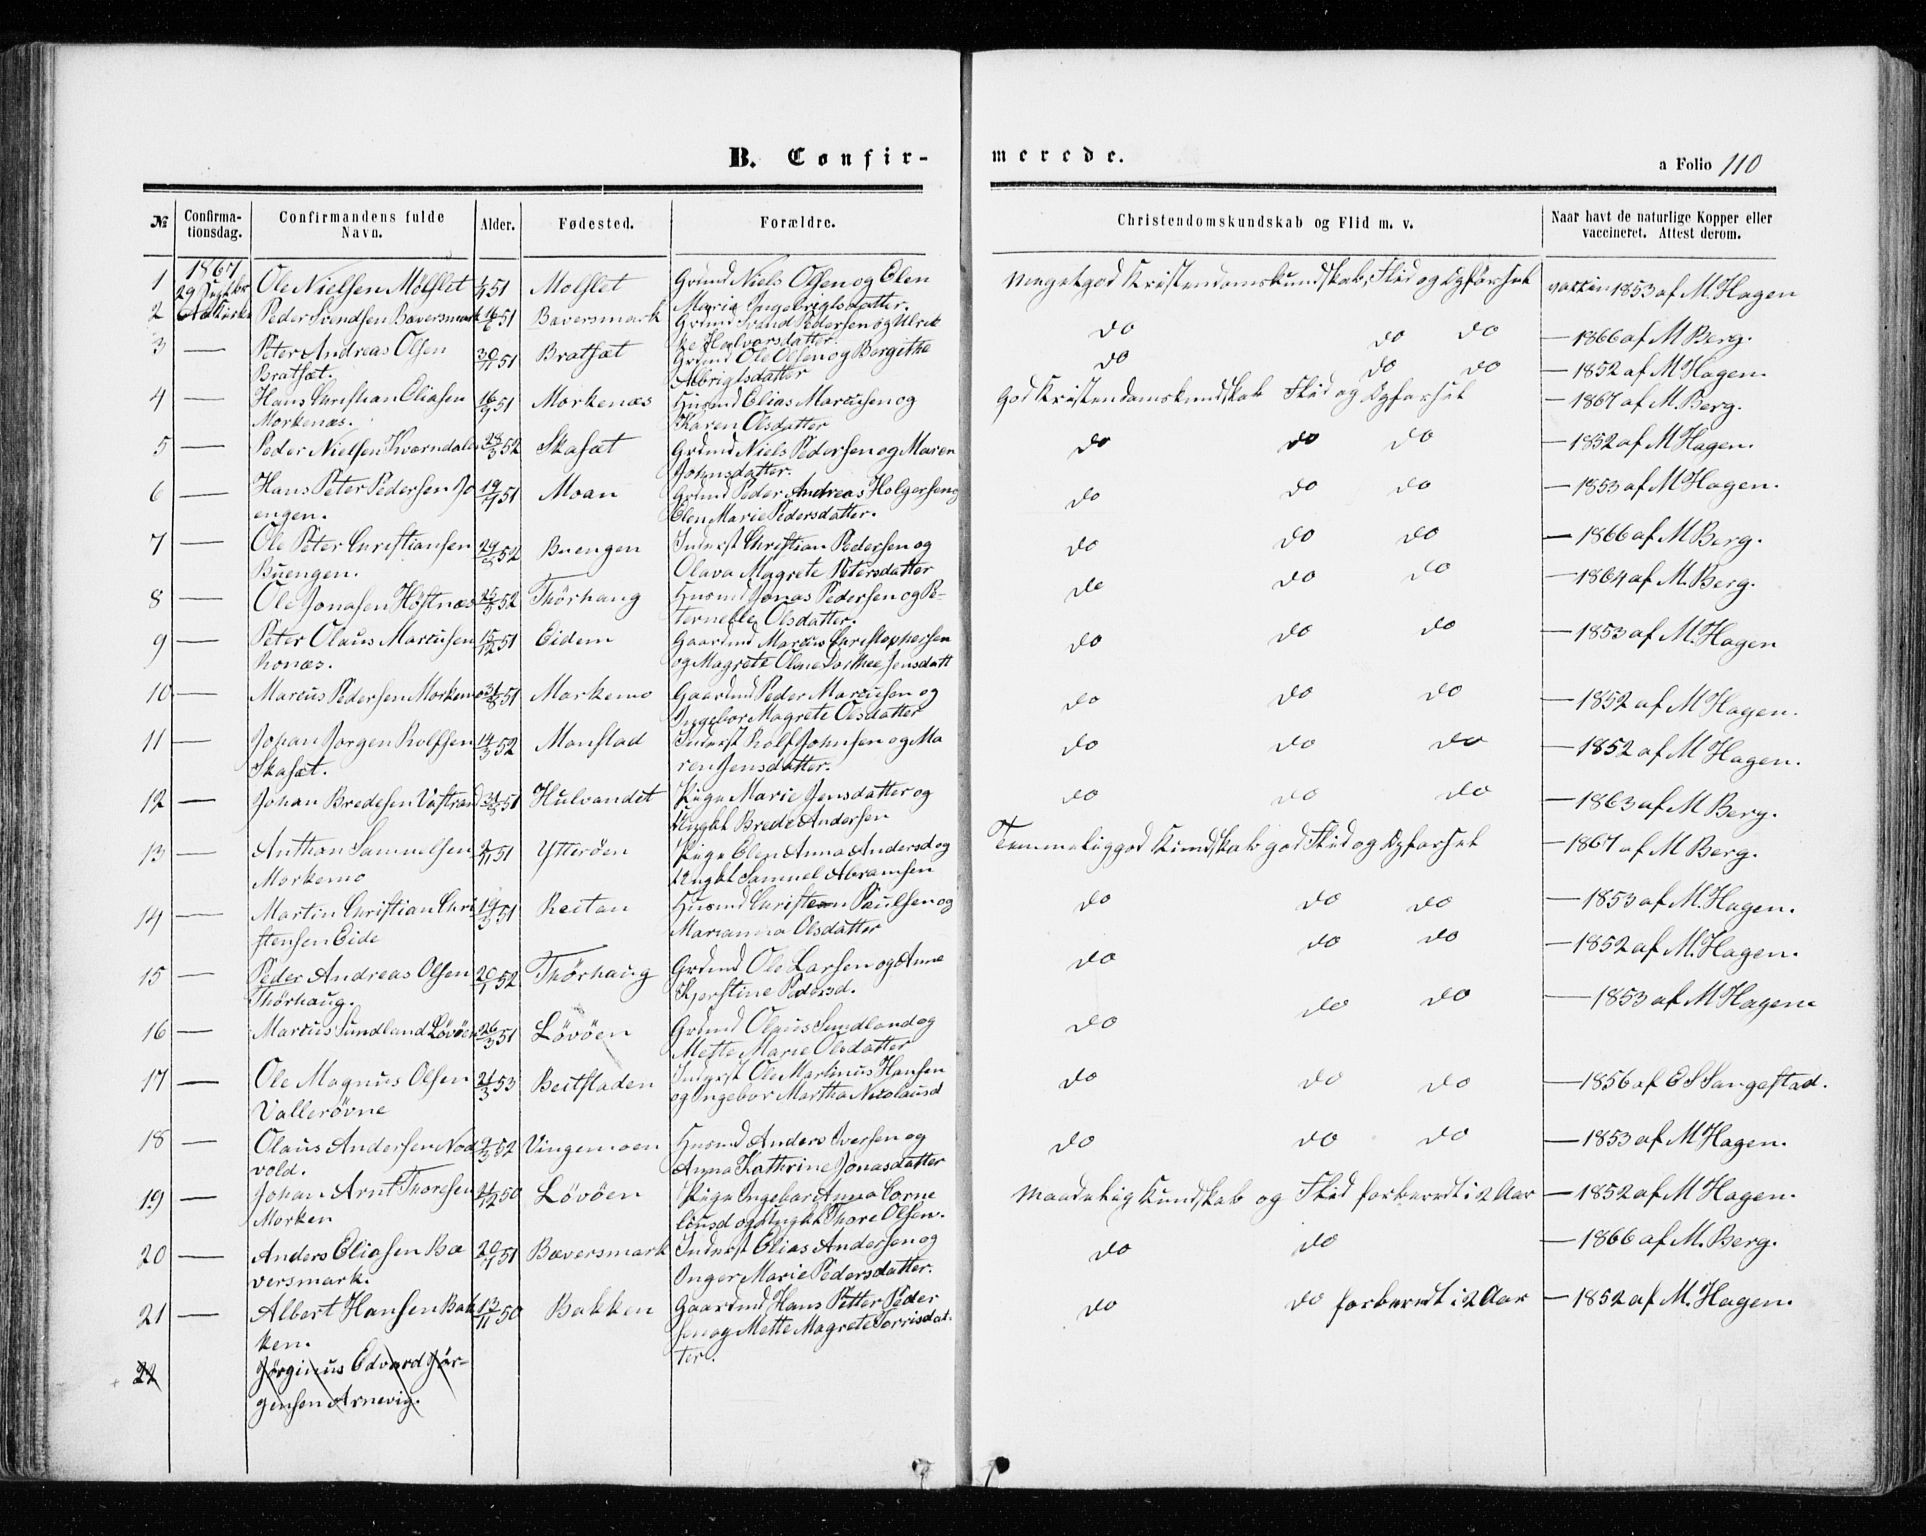 B. Confir-
merede.
a Folio 110
№ Confirmationsdag. Confirmandens fulde Navn. Alder. Fødested. Forældre. Christendomskundskab og Flid m. v. Naar havt de naturlige Kopper eller vaccineret. Attest derom.
1867
1 29 Septbr Ole Nielsen Mølslet 51 Molslet Grdmd Niels Olsen og Elen Meget god Kristendomskundskab, Flid og Opførsel vaccin 1853 af M. Hagen
Marie Ingebrigtsdatter.
2 Peder Svendsen Baversmark 16/6 51 Baversmark Grdmd Svend Pedersen og Ulrik do do do — 1866 af M Berg.
ke Halvorsdatter.
3 — Peter Andreas Olsen 30/7 51 Bratsæt Grdmd Ole Olsen og Bergithe do do do — 1852 af M Hagen.
Bratsæt. Albrigtsdatter
4 — Hans Christian Eliasen 16/9 51 Morkenæs Husmd Elias Marcusen og God Kristendomskundskab Flid og Opførsel — 1867 af M. Berg.
Morkenæs. Karen Olsdatter
5 — Peder Nielsen Kværndalen 28/3 52 Skasæt Grdmd Niels Pedersen og Maren do do do — 1852 af M Hagen.
Johnsdatter.
6 — Hans Peter Pedersen Jo 19/7 51 Moan Grdmd Peder Andreas Holgersen og do do do — 1853 af M Hagen.
engen. Elen Marie Pedersdatter.
7 — Ole Peter Christiansen 29/5 52 Buengen Inderst Christian Pedersen og do do do — 1866 af M Berg.
Buengen. Olava Magrete Petersdatter
8 — Ole Jonasen Høstnæs 25/5 52 Thörhaug Husmd Jonas Pedersen og Pe- do do do — 1864 af M. Berg.
ternelle Olsdatter.
9 — Peter Olaus Marcusen 15/12 51 Eidem Gaardmd Marcus Christophersen do do do — 1853 af M. Hagen
honæs. og Magrete Oline Dorthee Jensdatt
10 — Marcus Pedersen Morkemo 31/8 51 Markemo Gaardmd Peder Marcusen og do do do — 1852 af M Hagen.
Ingebor Magrete Olsdatter
11 — Johan Jørgen Rolfsen 14/3 52 Monstad Inderst Rolf Johnsen og Ma do do do — 1852 af M Hagen.
Skasæt. ren Jensdatter.
12 — Johan Bredesen Vastrand 31/8 51 Hulvandet Pige Marie Jensdatter og do do do — 1863 af M Berg.
Ungkl Brede Andersen
13 — Anthon Samuelsen 51 Ytterøen Pige Elen Anna Andersd og Temmelig god Kundskab god Flid og Opførsel — 1867 af M Berg.
Morkemo Ungkl Samuel Abramsen
14 — Martin Christian Chri 19/3 51 Reitan Husmd Christen Paulsen og do do do — 1853 af M. Hagen.
stensen Eide Marianna Olsdatter
15 — Peder Andreas Olsen 20/1 52 Thörhaug Grdmd Ole Larsen og Anne do do do — 1852 af M. Hagen.
Thörhaug. Kjerstine Pedersd.
16 — Marcus Sundland Lövöen 26/3 51 Lövöen Grdmd Olaus Sundland og do do do — 1853 af M Hagen
Mette Marie Olsdatter
17 — Ole Magnus Olsen 21/3 53 Beitstaden Inderst Ole Martinus Hansen do do do — 1856 af E S Sangestad.
Vallerövne og Ingebor Martha Nicolausd
18 — Olaus Andersen Nod 9/3 52 Vingemoen Husmd Anders Iversen og do do do — 1853 af M Hagen.
vold. Anna Kathrine Jonasdatter
19 — Johan Arnt Thoresen 21/12 50 Lövöen Pige Ingebor Anna Corne Maadelig Kundskab og Flid forberedt i 2 Aar — 1852 af M Hagen.
Morken liusd og Ungkl Thore Olsen.
20 — Anders Eliasen Bæ 20/7 51 Bæversmark Inderst Elias Andersen og do do — 1866 af M. Berg.
versmark. Inger Marie Pedersdatter.
21 — Albert Hansen Bak 13/11 50 Bakken Gaardmd Hans Petter Peder do do forberedt i 2 Aar — 1852 af M. Hagen.
ken. sen og Mette Magrete Torrisdat-
ter.
22 Jørginus Edvard Jör-
gensen Arnevig.